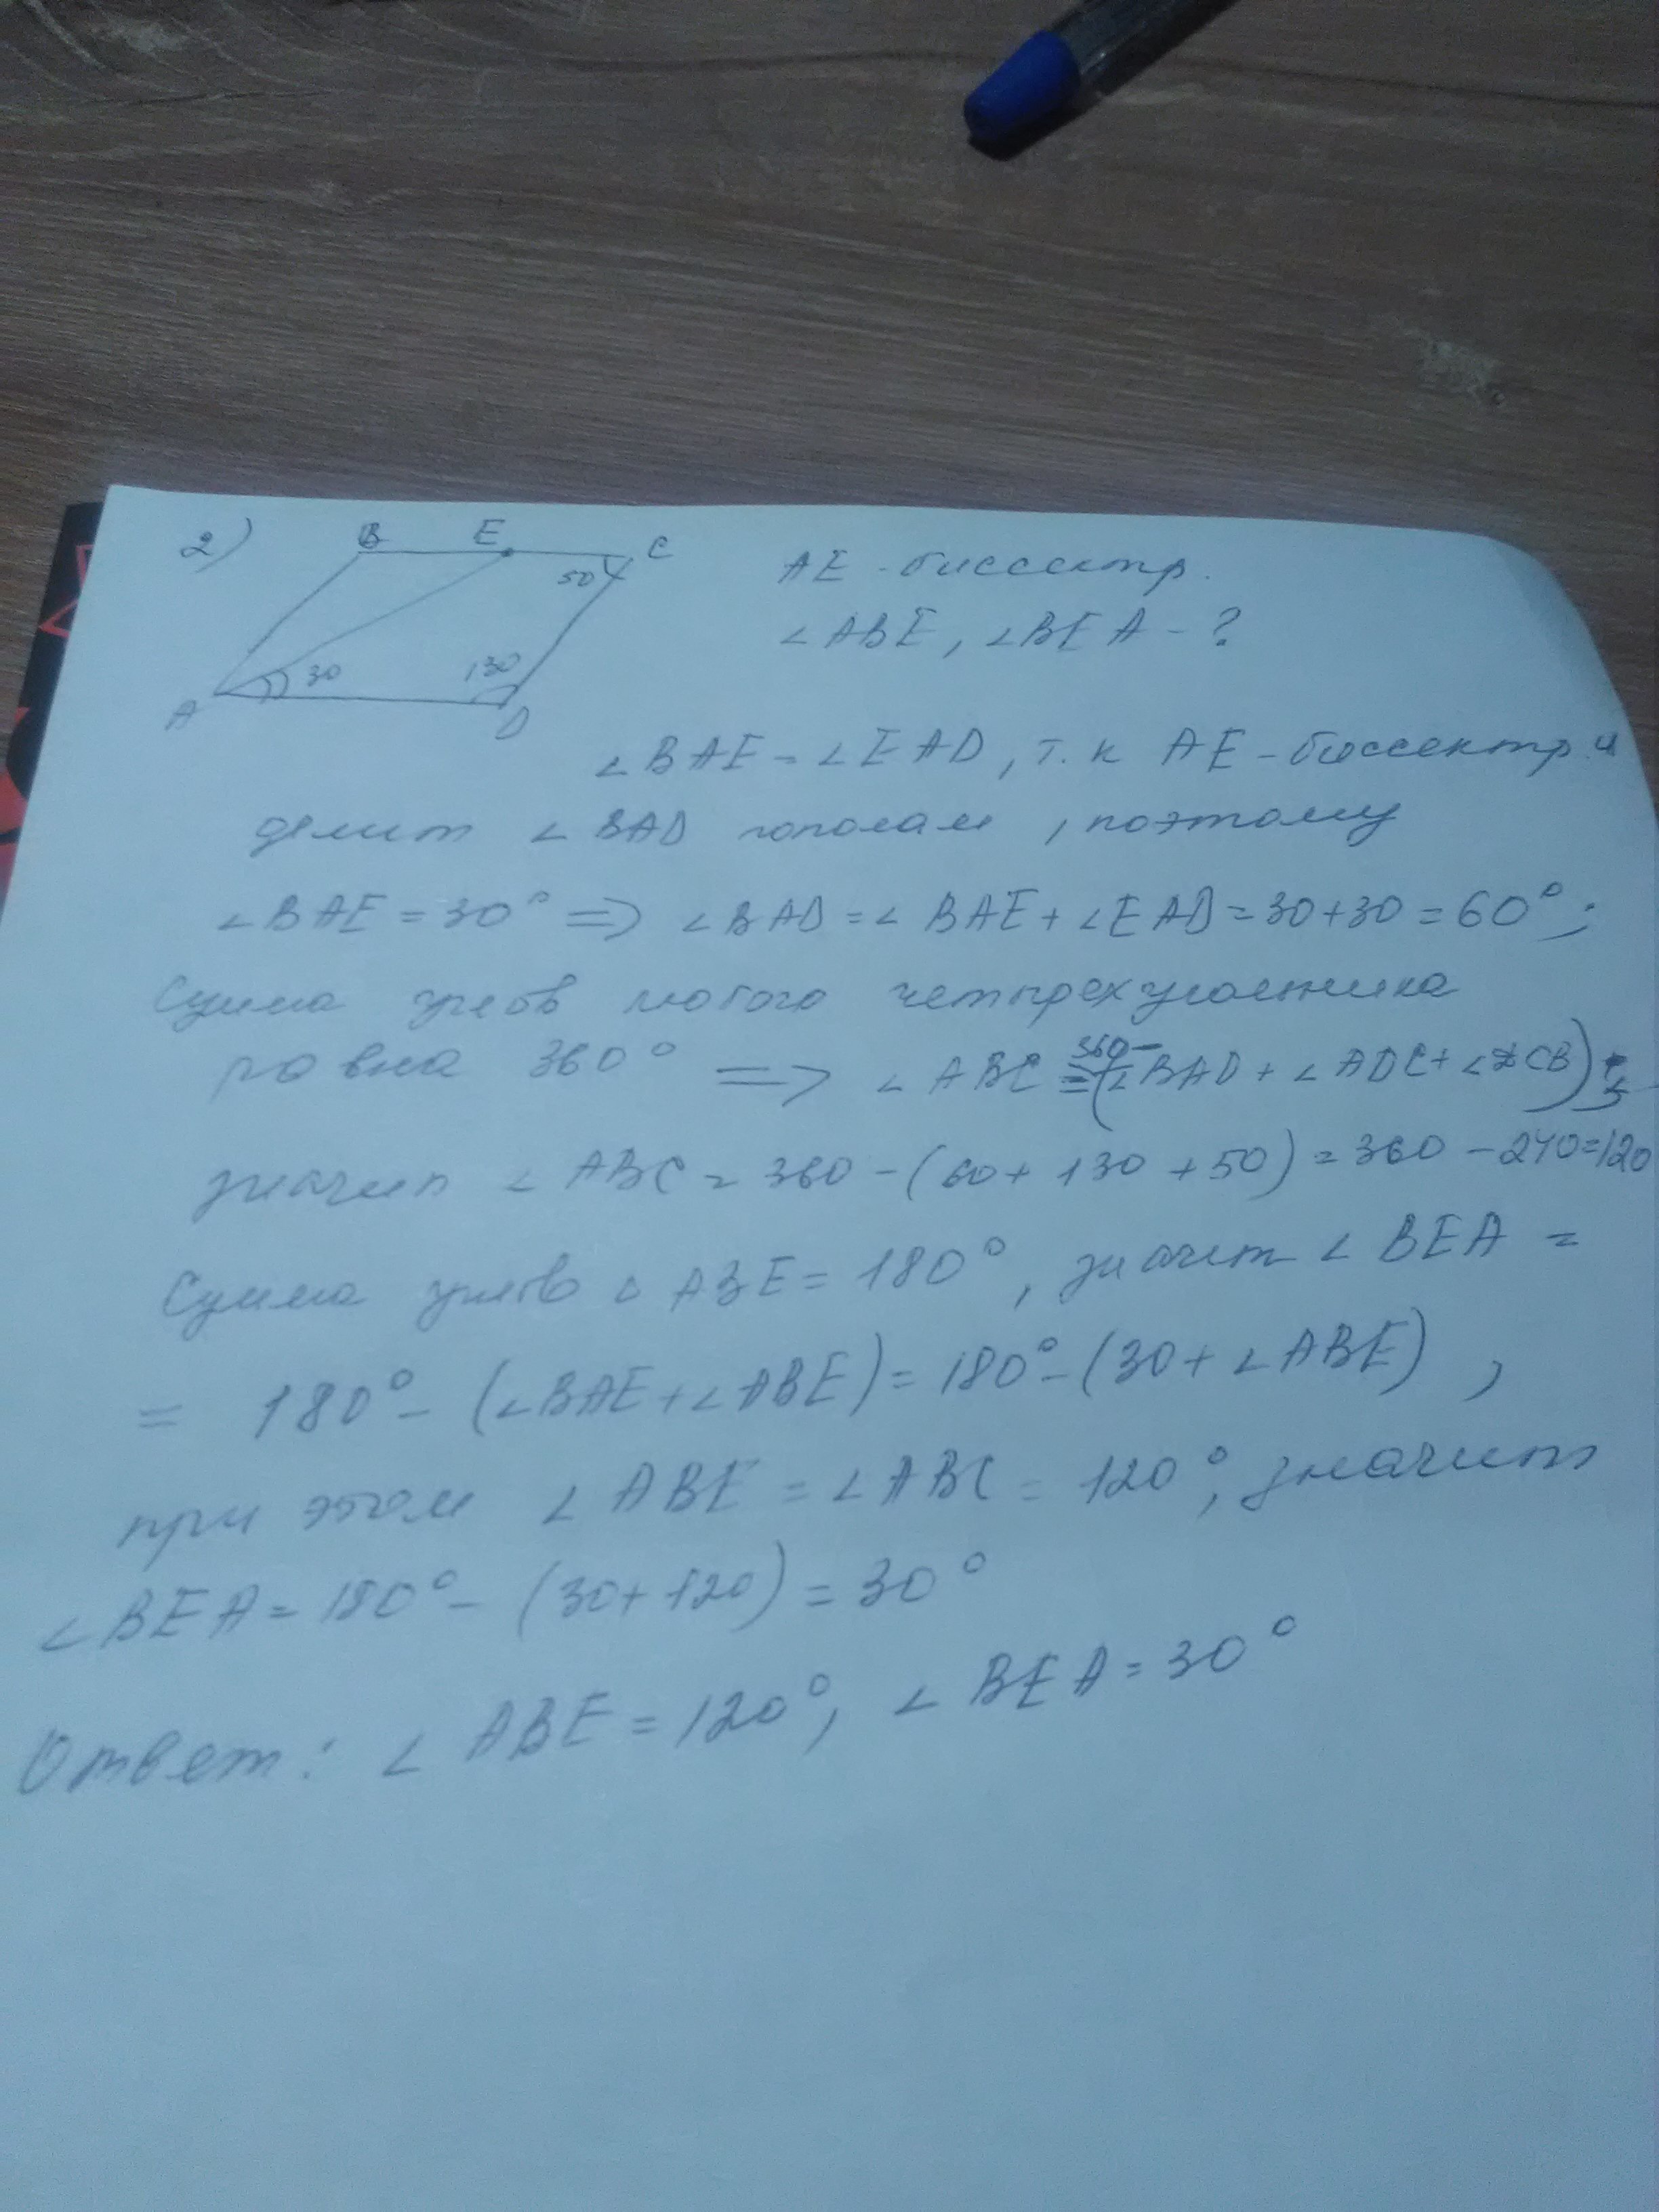 2)
B E C
50
30
130
A D
AE - биссектр.
∠ABE, ∠BEA - ?
∠BAE = ∠EAD, т.к AE - биссектр. и
делит ∠BAD пополам, поэтому
∠BAE = 30° => ∠BAD = ∠BAE + ∠EAD = 30+30 = 60°;
Сумма углов любого четырехугольника
равна 360° => ∠ABC = 360 - (∠BAD + ∠ADC + ∠DCB);
значит ∠ABC = 360 - (60 + 130 + 50) = 360 - 240 = 120
Сумма углов △ ABE = 180°, значит ∠BEA =
= 180° - (∠BAE + ∠ABE) = 180° - (30 + ∠ABE),
при этом ∠ABE = ∠ABC = 120°, значит
∠BEA = 180° - (30+120) = 30°
Ответ: ∠ABE = 120°, ∠BEA = 30°